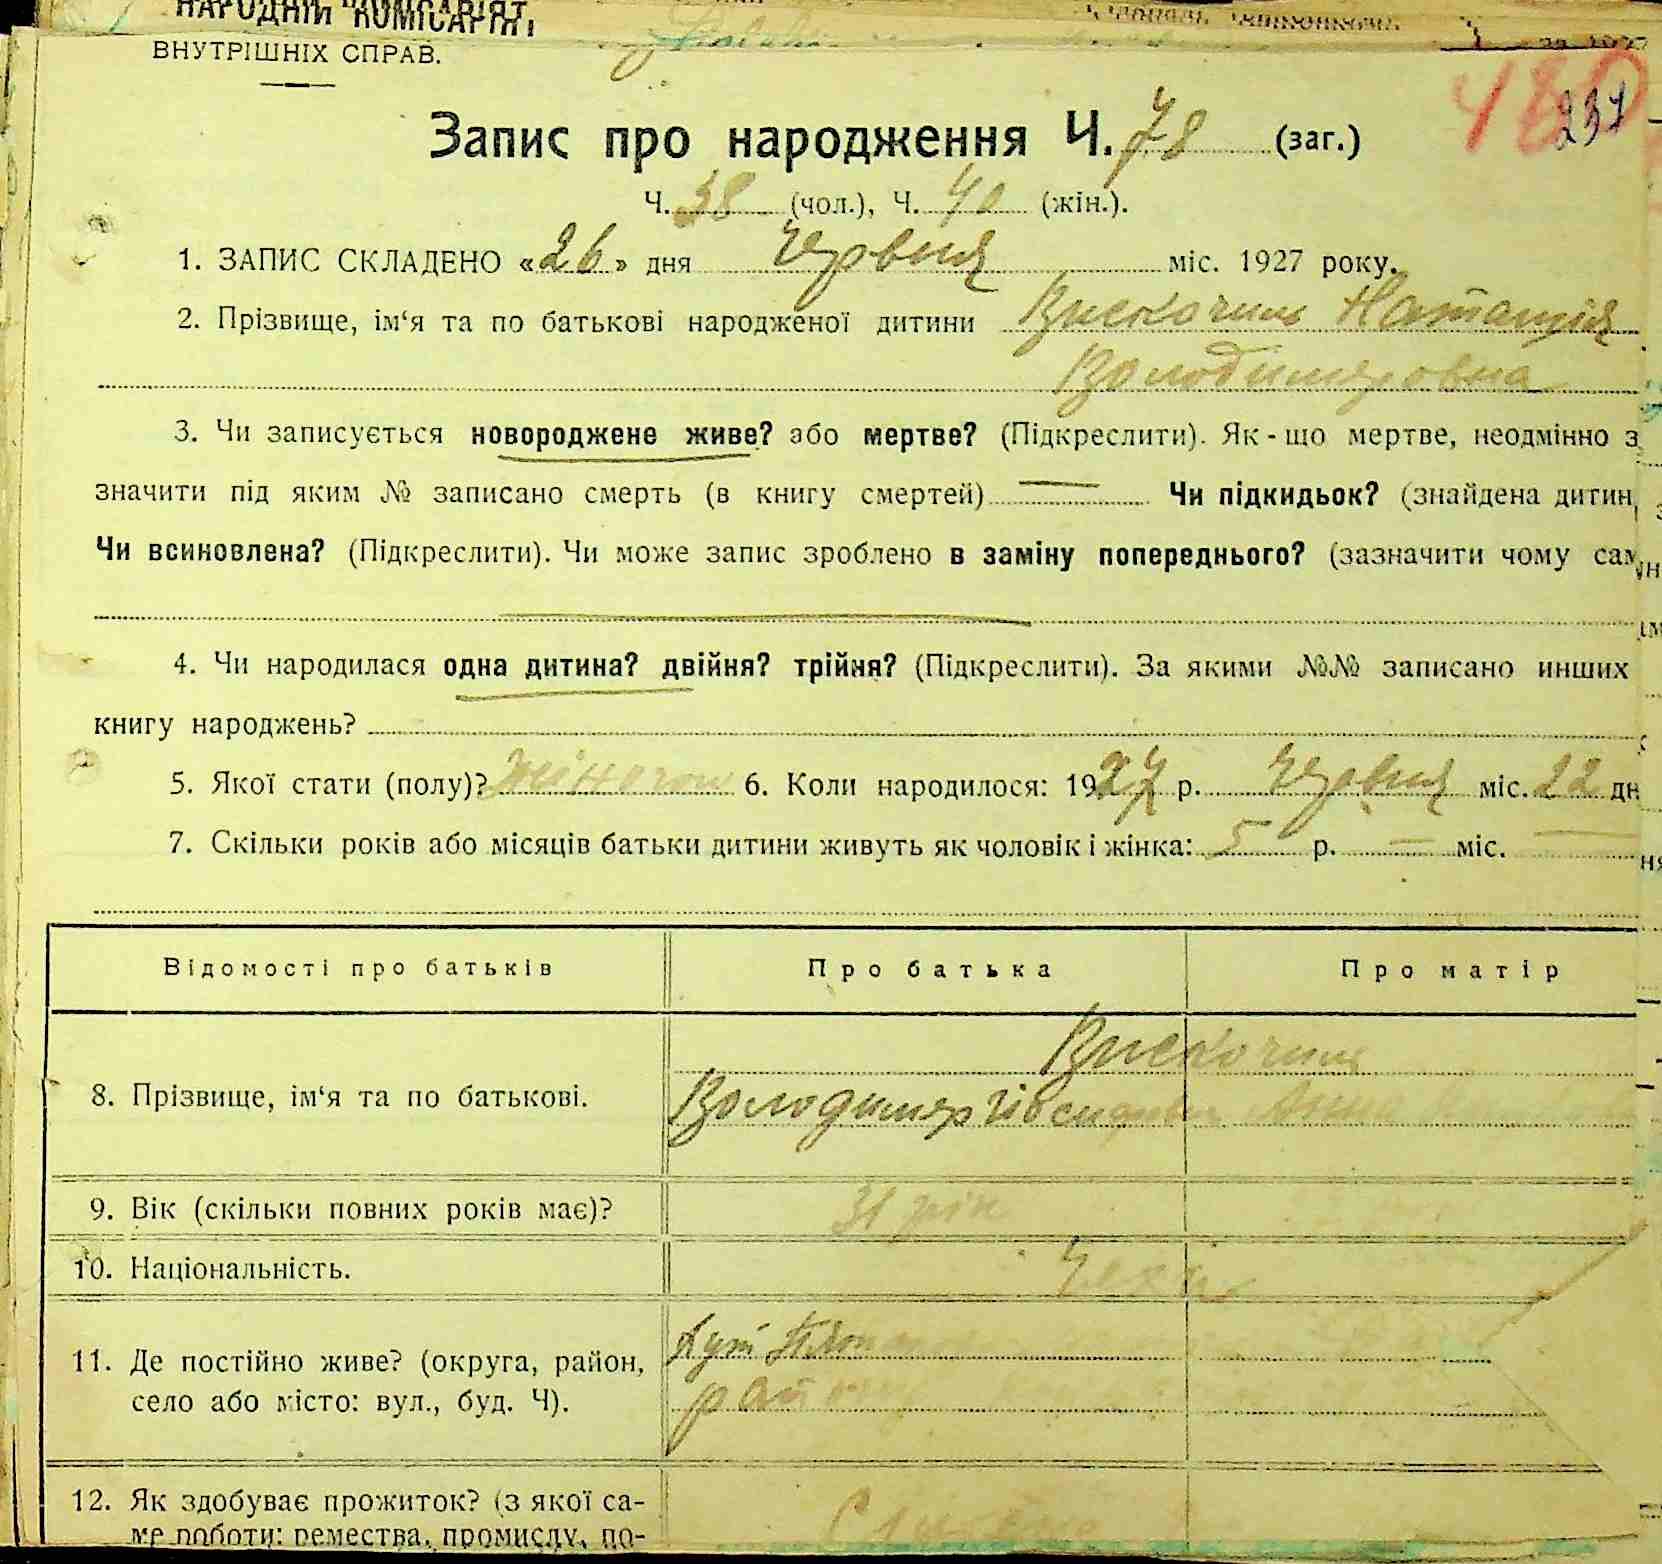 НАРОДНІЙ КОМІСАРІЯТ
ВНУТРІШНІХ СПРАВ.
237
Запис про народження Ч. 78 (заг.)
Ч. 38 (чол.), Ч. 40 (жін.).
1. ЗАПИС СКЛАДЕНО «26» дня Червня міс. 1927 року.
2. Прізвище, ім‘я та по батькові народженої дитини Вискочил Наталія
Володимеровна
3. Чи записується новороджене живе? або мертве? (Підкреслити). Як-що мертве, неодмінно з
значити під яким № записано смерть (в книгу смертей) — Чи підкидьок? (знайдена дитин
Чи всиновлена? (Підкреслити). Чи може запис зроблено в заміну попереднього? (зазначити чому сам
4. Чи народилася одна дитина? двійня? трійня? (Підкреслити). За якими №№ записано инших
книгу народжень?
5. Якої стати (полу)? жіночої 6. Коли народилося: 1927 р. Червня міс. 22 дн
7. Скільки років або місяців батьки дитини живуть як чоловік і жінка: 5 р. — міс.
Відомості про батьків Про батька Про матір
Вискочил
8. Прізвище, ім‘я та по батькові. Володимер Анна
9. Вік (скільки повних років має)? 31 рік
10. Національність. Чехи
11. Де постійно живе? (округа, район,
село або місто: вул., буд. Ч). району
12. Як здобуває прожиток? (з якої са-
ме роботи: ремества, промислу, по-